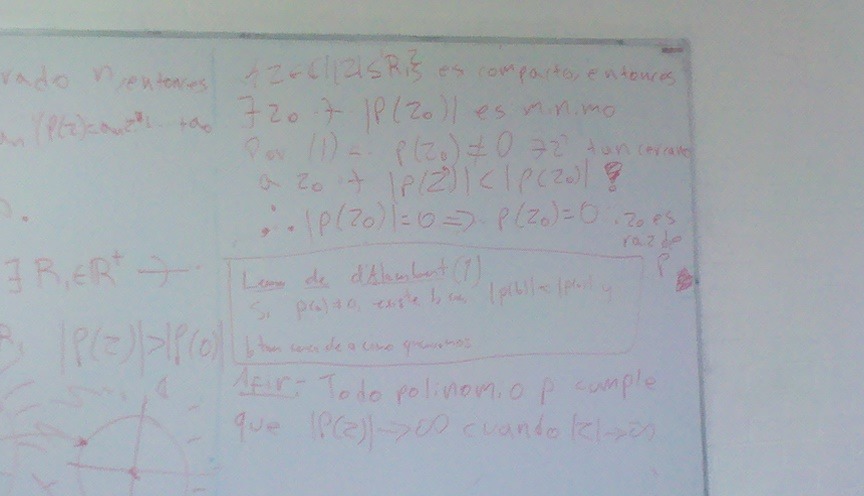 rado n, entonces
|P(z)=a_n z^n+...+a_0
∃ R₁∈R⁺ ⊣·
|P(z)|>|P(0)|
{z∈C||z|≤R₁} es compacto, entonces
∃z₀ ⊣ |P(z₀)| es minimo
Por (1) P(z₀)≠0 ∃z' tan cercano
a z₀ ⊣ |P(z')|<|P(z₀)|
∴ |P(z₀)|=0 ⇒ P(z₀)=0 . z₀ es
raiz de
P
Lema de dAlambert (1)
Si p(a)≠0, existe b |p(b)|<|p(a)| y
b tan cerca de a como queramos
Afir: Todo polinomio p cumple
que |P(z)|→∞ cuando |z|→∞